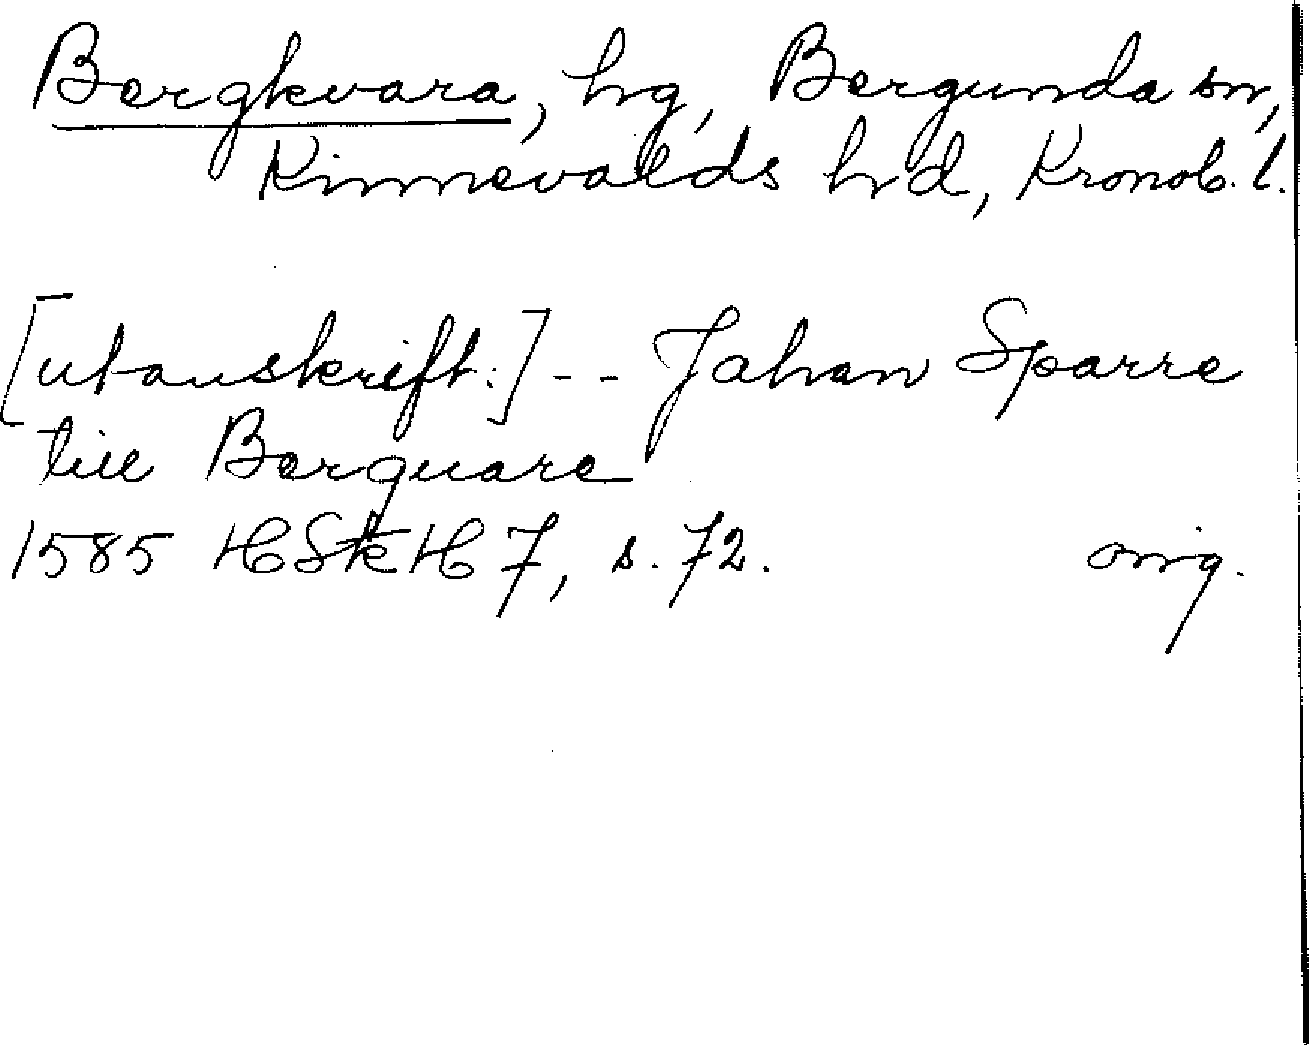 Bergkvara, hg, Bergunda sn,
Kinnevalds hd, Kronob. l.
[utanskrift:] -- Johan Sparre
till Berquare
1585 HSkH 7, s. 72. orig.